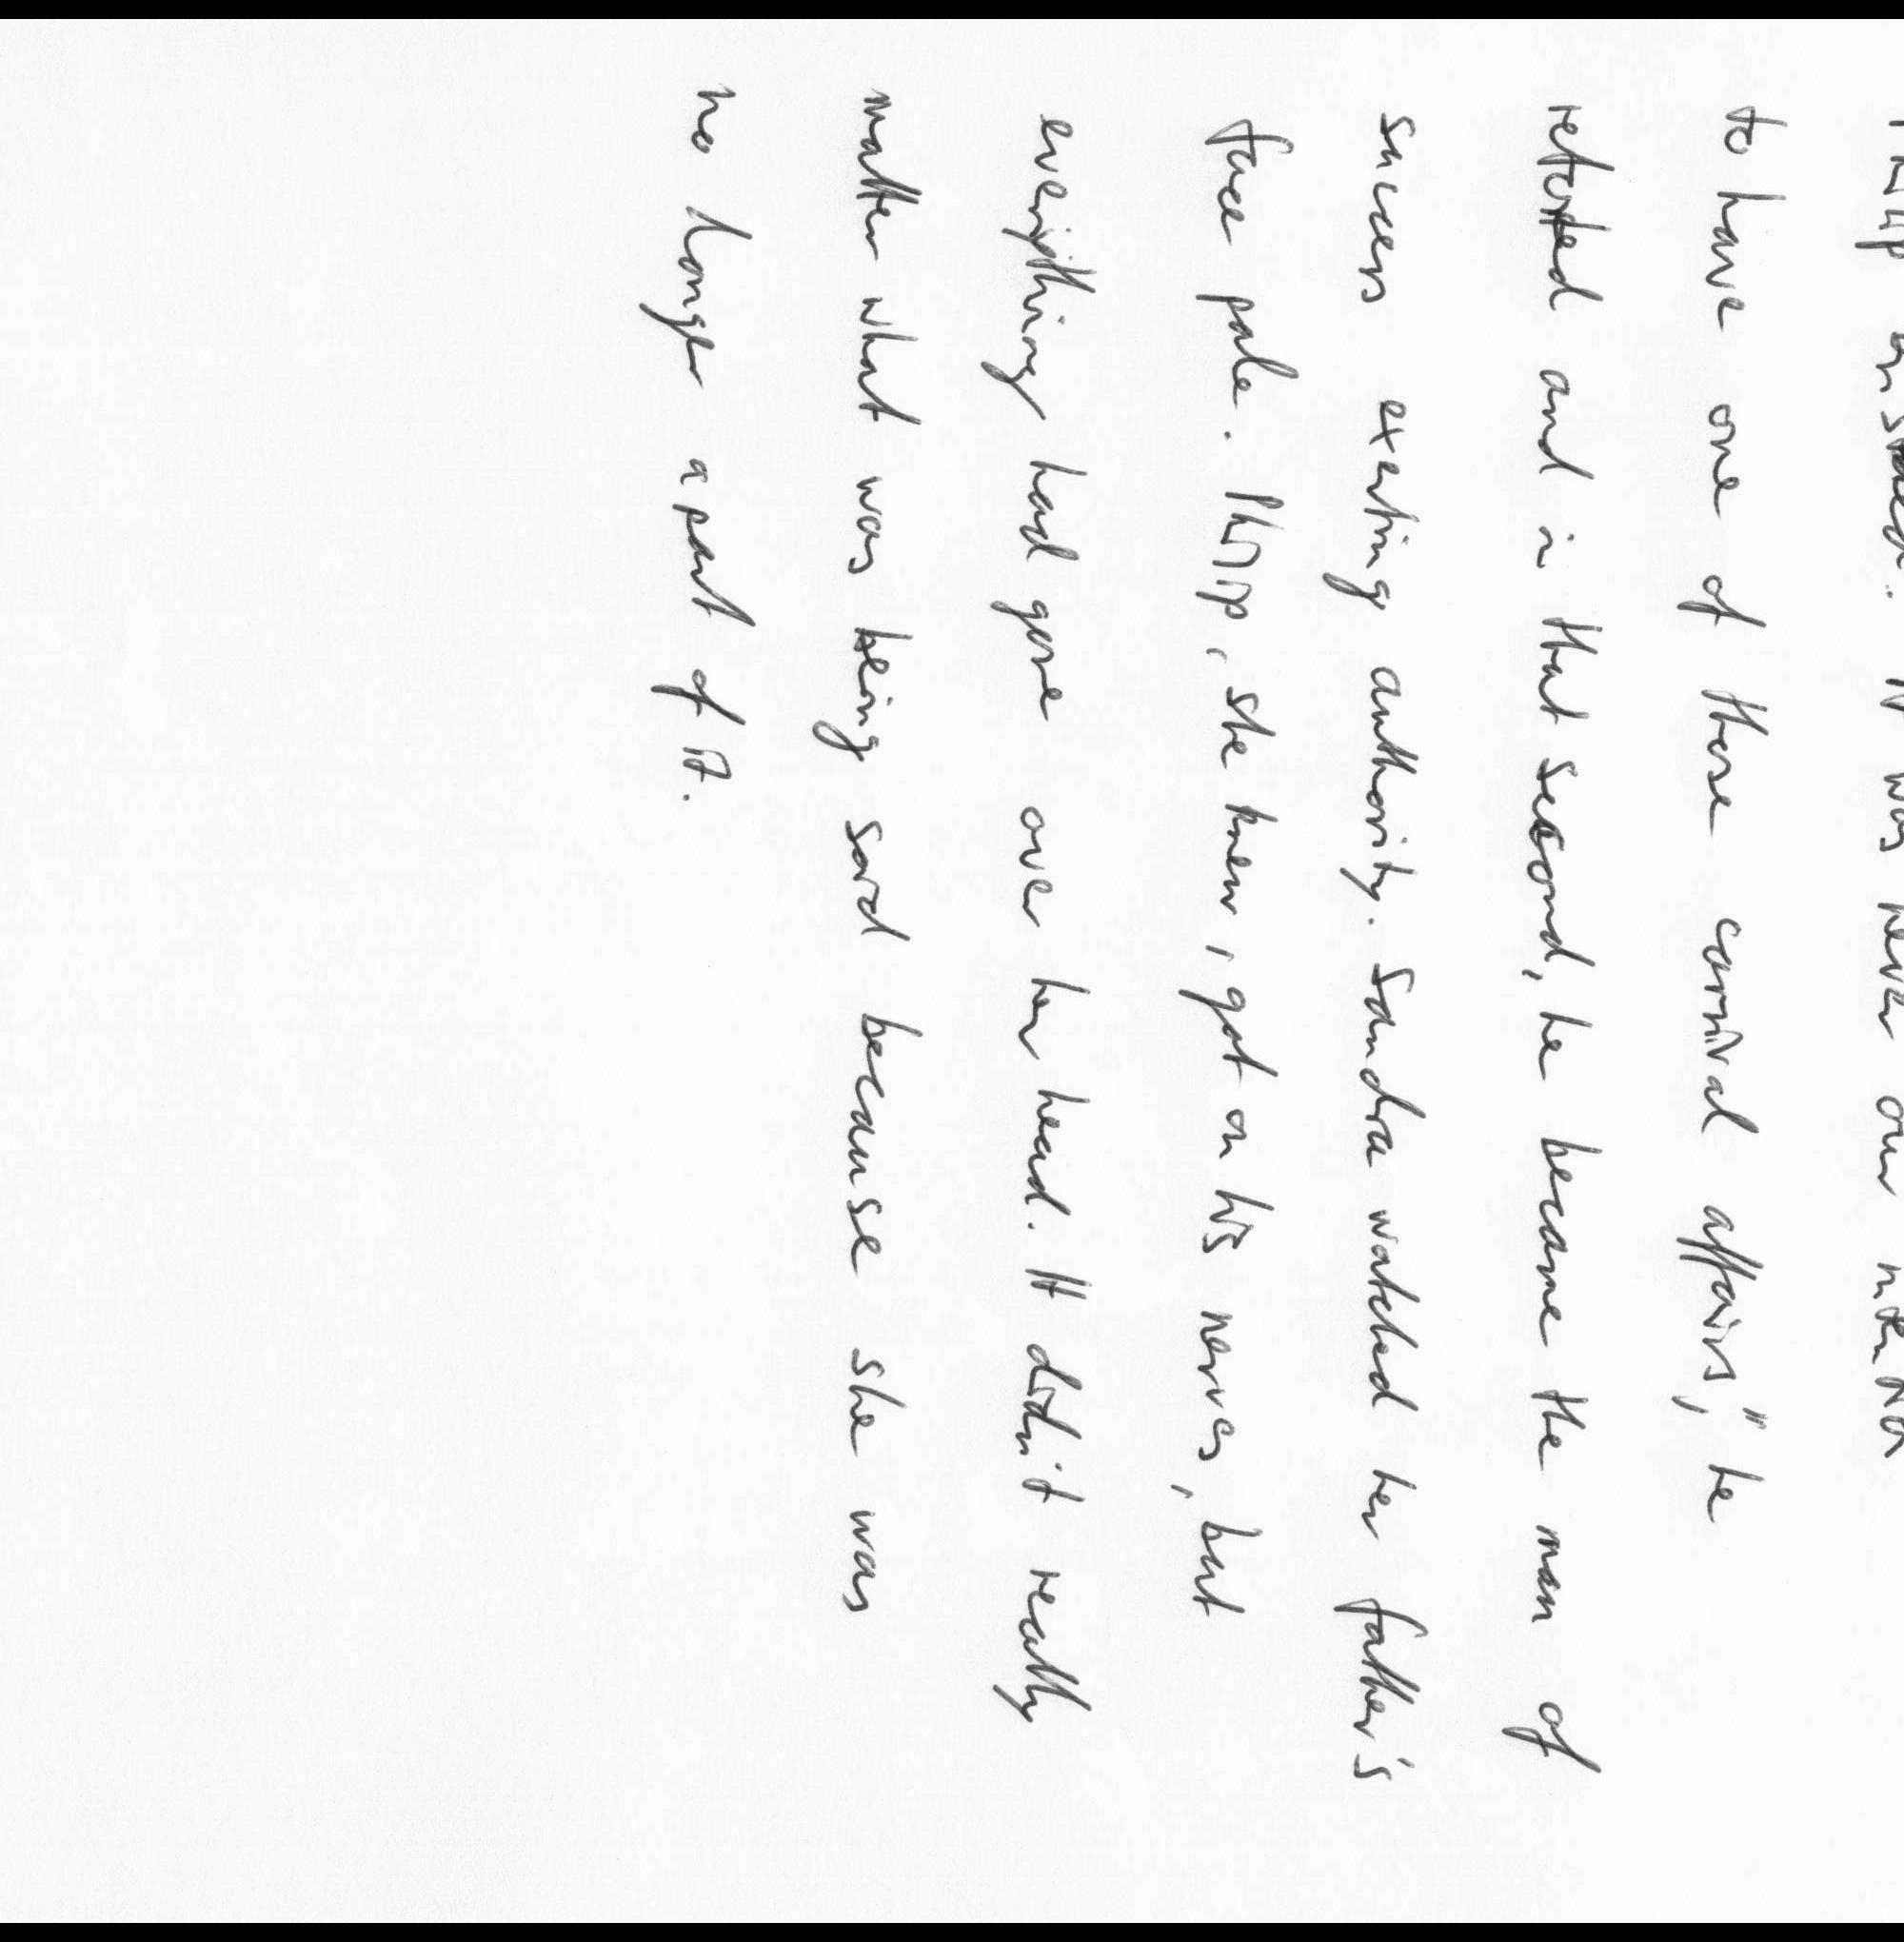 Philip insisted. It was never our intention
to have one of these carnival affairs," he
retorted and in that second, he became the man of
success exerting authority. Sandra watched her father's
face pale. Philip, she knew, got on his nerves, but
everything had gone over her head. It didn't really
matter what was being said because she was
no longer a part of it.